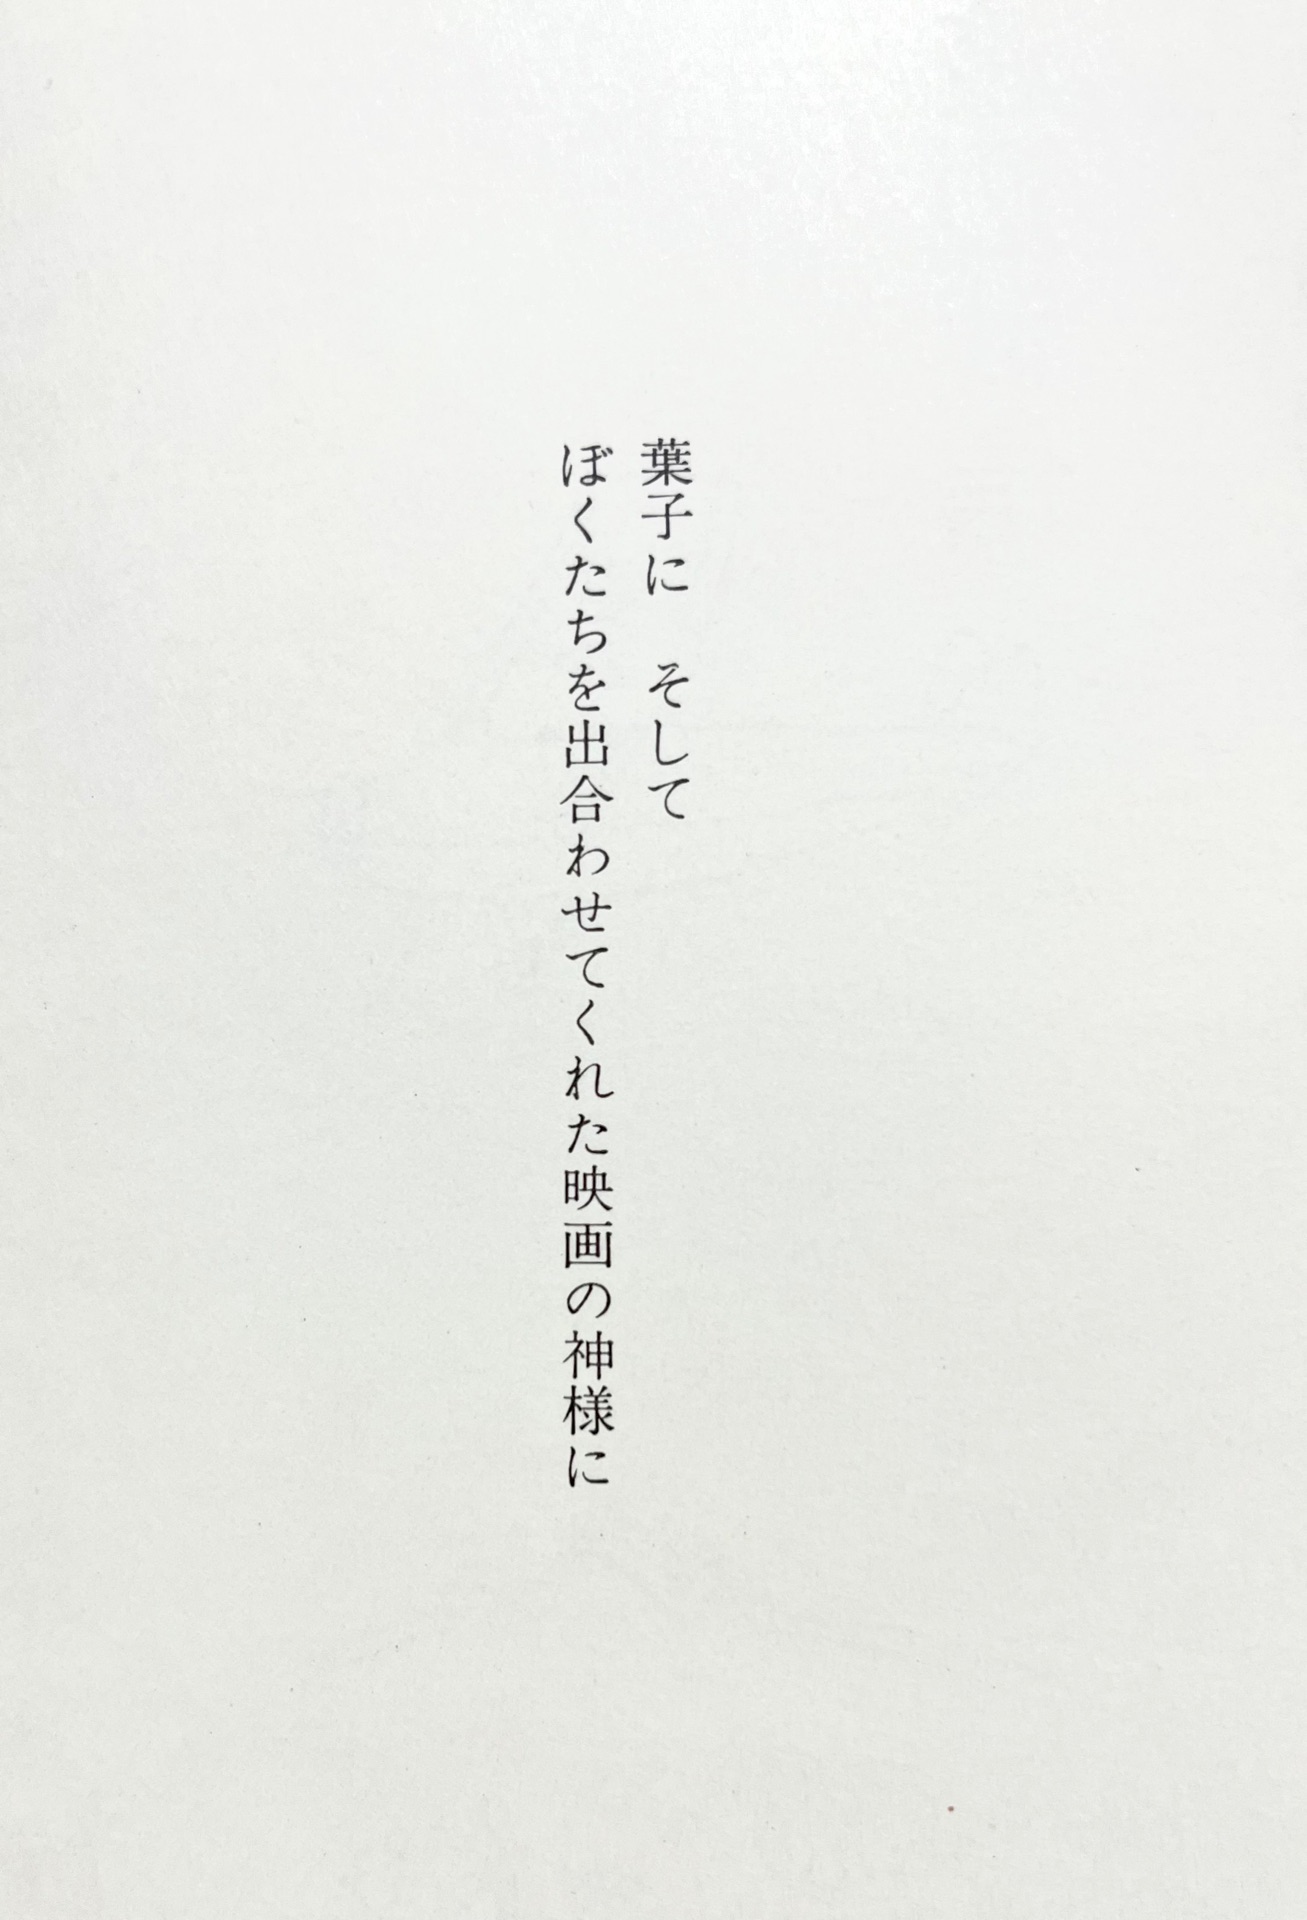 葉子に　そして
ぼくたちを出合わせてくれた映画の神様に